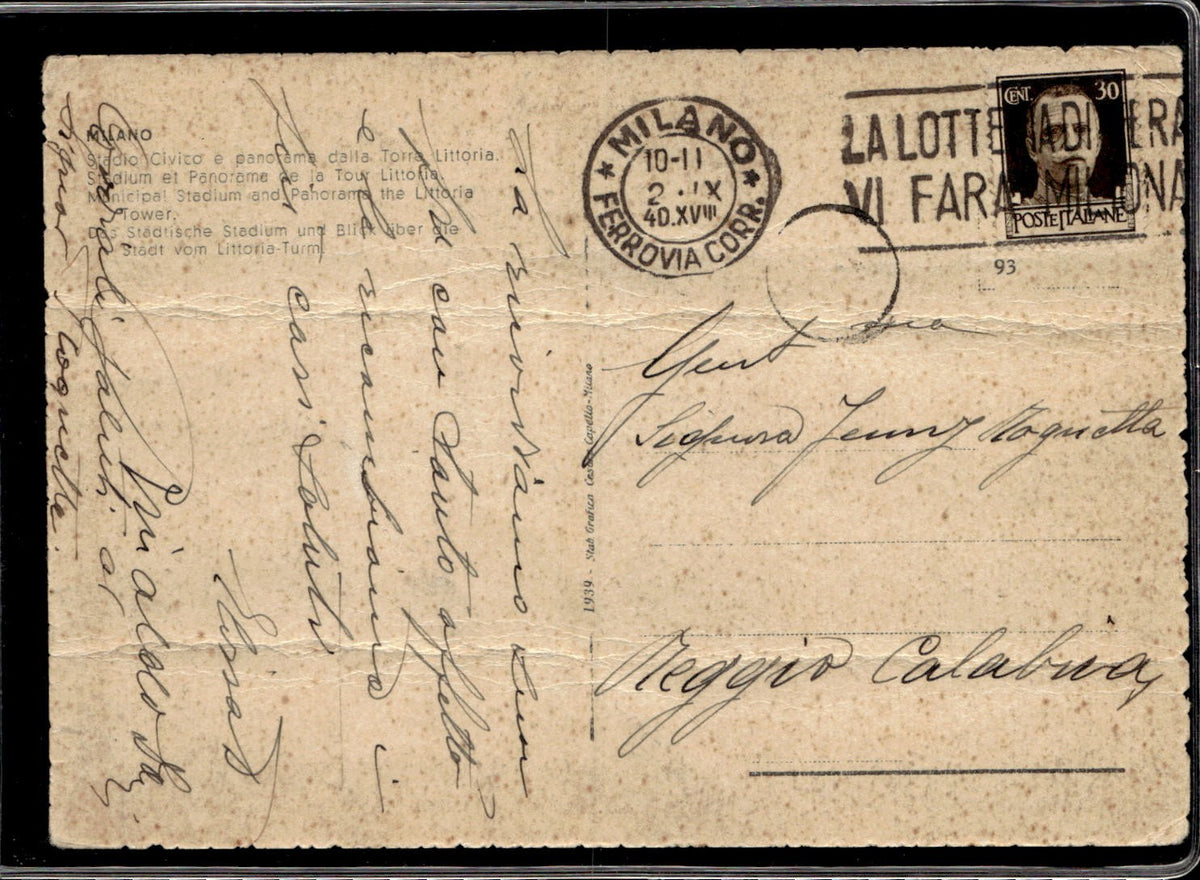 MILANO
Stadio Civico e panorama dalla Torre Littoria.
Stadium et Panorama de la Tour Littoria.
Municipal Stadium and Panorama the Littoria
Tower.
Das Städtische Stadium und Blick über die
Stadt vom Littoria-Turm
MILANO
10-11
2 . IX
40.XVIII
FERROVIA CORR.
LA LOTTE IA DI ERA
VI FARA MILIONA
CENT. 30
POSTE ITALIANE
93
1939 - Stab. Grafico Cesare Capello-Milano
Gent ma
Signora Jenny Rognetta
Reggio Calabria,
La ricordiamo
con tanto affetto
e le ricambiamo i
cari saluti
Cordiali saluti al
Signor